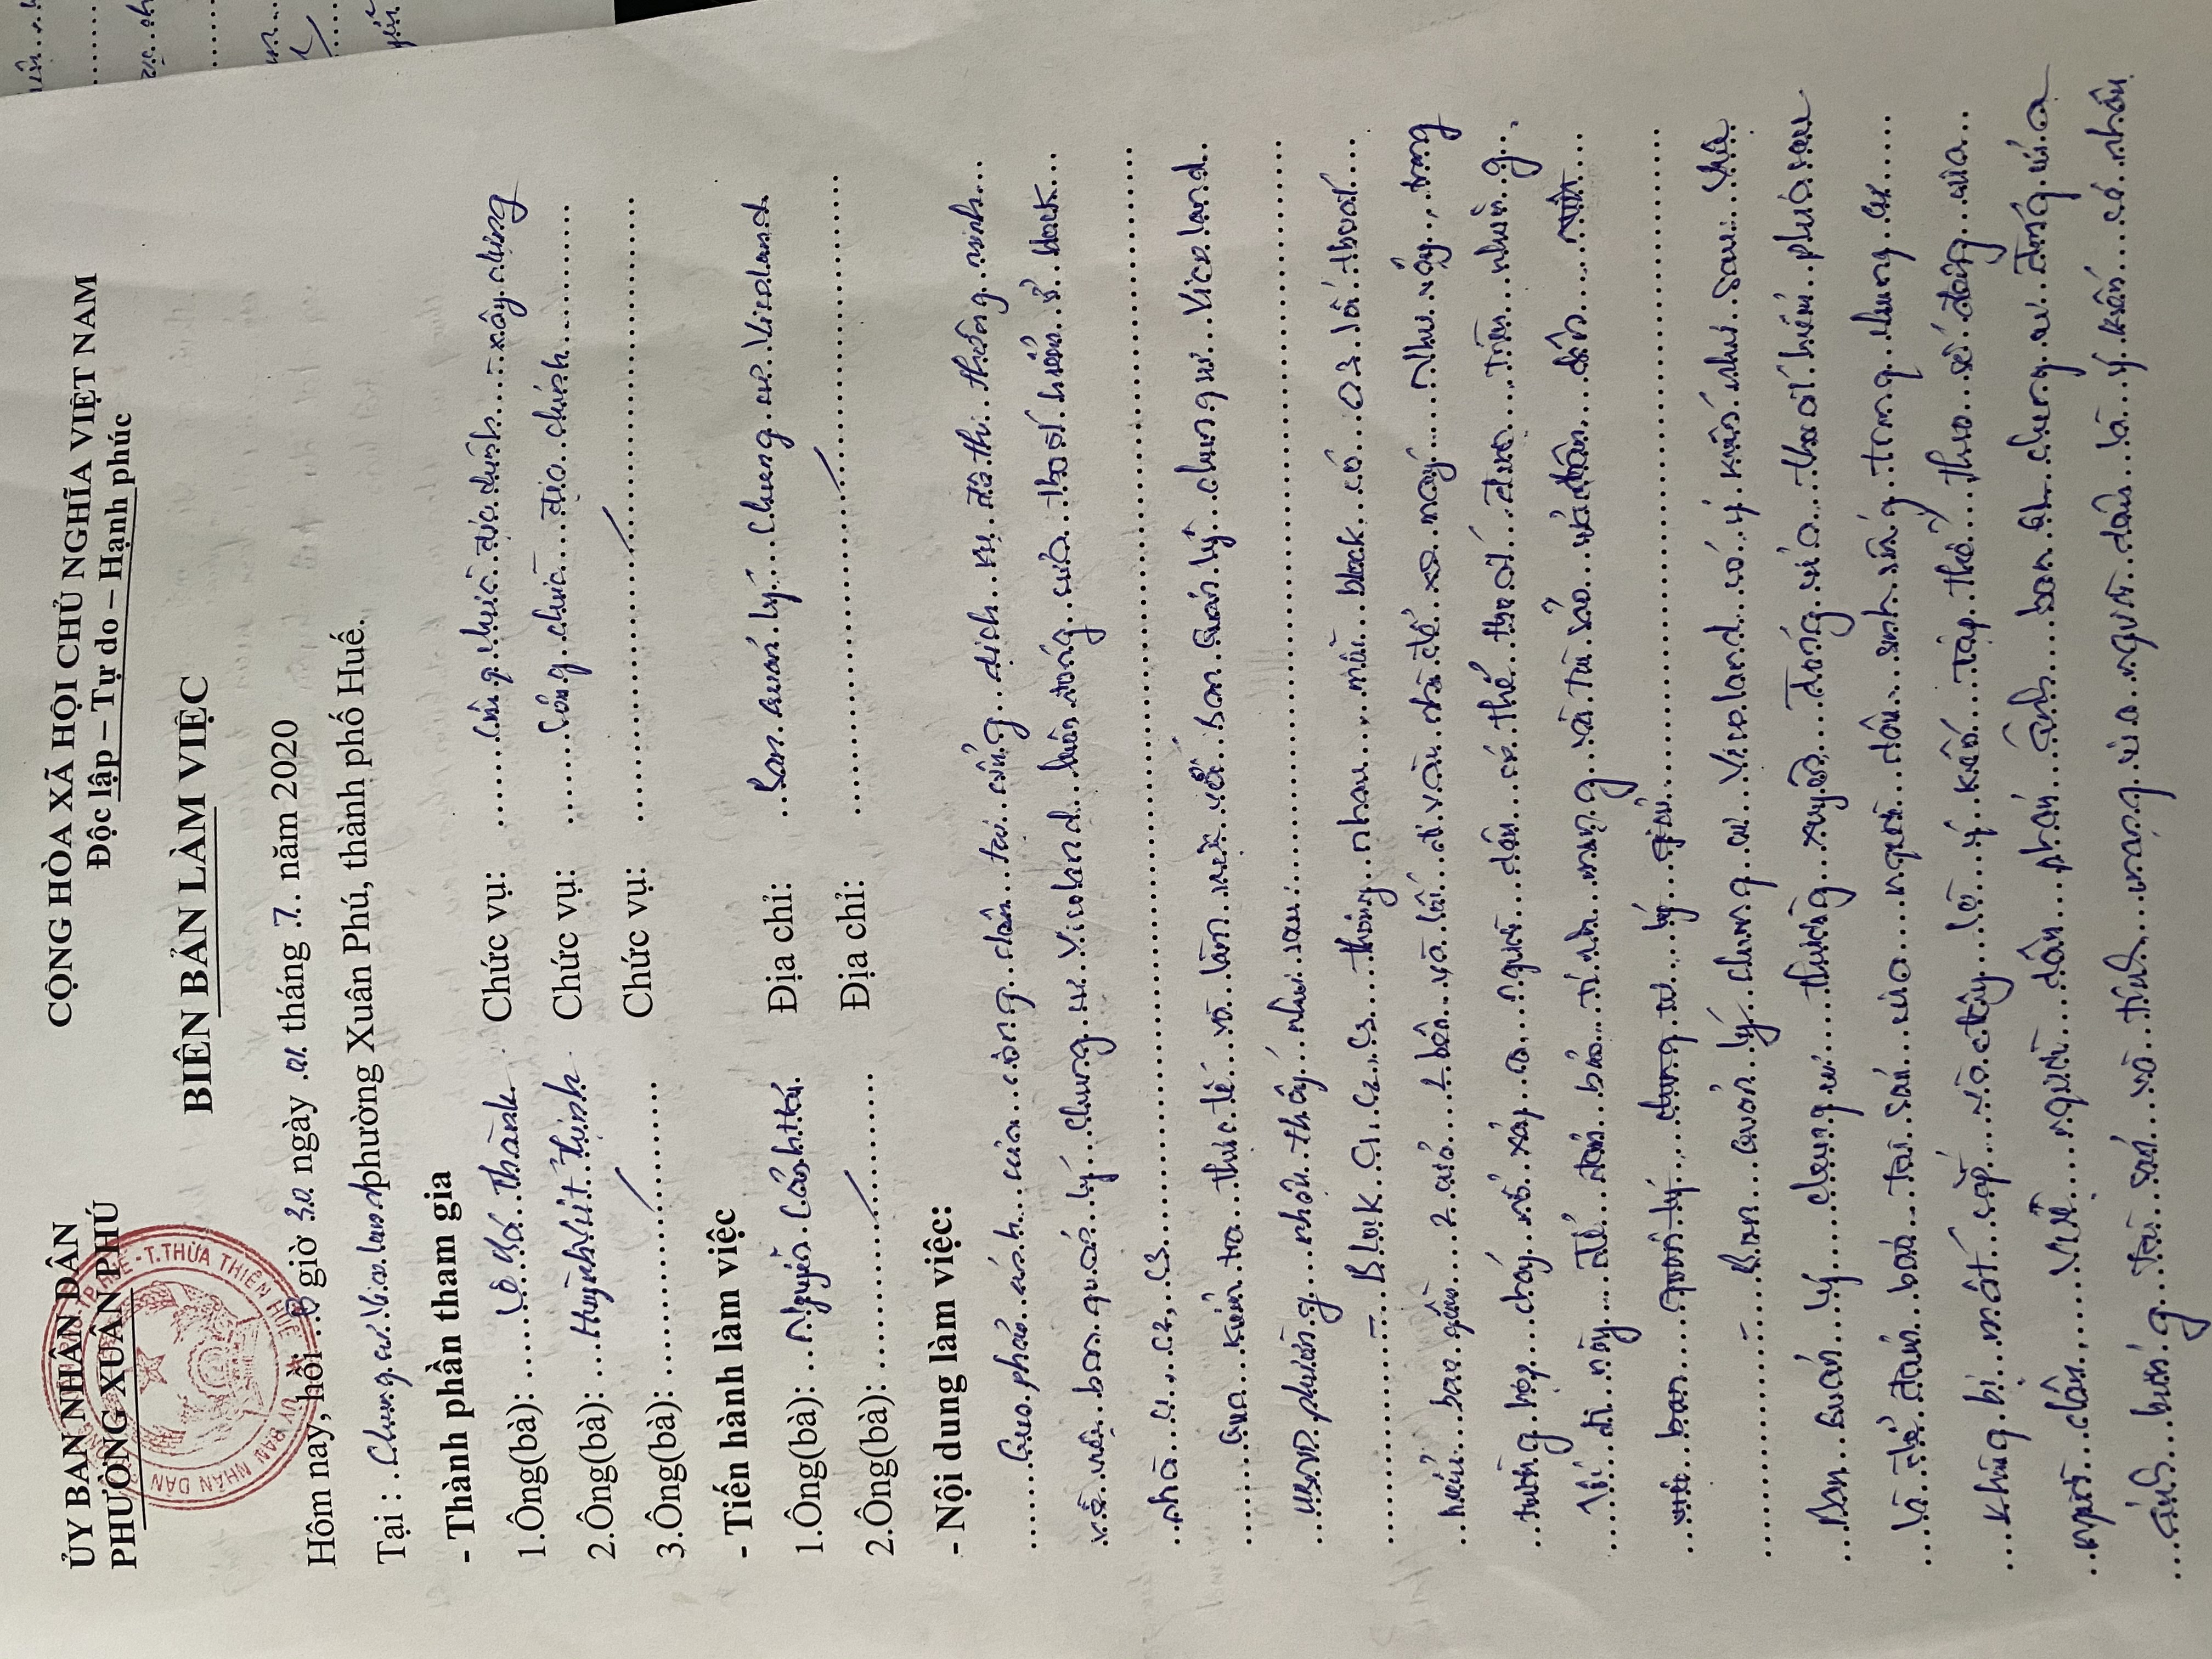 ỦY BAN NHÂN DÂN
PHƯỜNG XUÂN PHÚ
CỘNG HÒA XÃ HỘI CHỦ NGHĨA VIỆT NAM
Độc lập – Tự do – Hạnh phúc
BIÊN BẢN LÀM VIỆC
Hôm nay, hồi 8 giờ 30 ngày 01 tháng 7 năm 2020
Tại : Chung cư Vicoland phường Xuân Phú, thành phố Huế.
- Thành phần tham gia
1.Ông(bà): Lê Bá Thành Chức vụ: Công chức địa chính - xây dựng
2.Ông(bà): Huỳnh Việt Thịnh Chức vụ: Công chức địa chính
3.Ông(bà): Chức vụ:
- Tiến hành làm việc
1.Ông(bà): Nguyễn Cảnh Hà Địa chỉ: Ban quản lý Chung cư Vicoland
2.Ông(bà): Địa chỉ:
- Nội dung làm việc:
Qua phản ánh của công dân tại cổng dịch vụ đô thị thông minh
về việc ban quản lý chung cư Vicoland luôn đóng cửa thoát hiểm ở block
nhà C1, C2, C3
Qua kiểm tra thực tế và làm việc với ban quản lý chung cư Vicoland
UBND phường nhận thấy như sau:
- Block C1, C2, C3 thông nhau, mỗi block có 03 lối thoát
hiểm bao gồm 2 cửa 2 bên và lối đi vào nhà để xe máy. Như vậy, trong
trường hợp cháy nổ xảy ra người dân có thể thoát được trên những
lối đi này để đảm bảo tính mạng và tài sản của dân
- Ban quản lý chung cư Vicoland có ý kiến như sau: Việc
Ban quản lý chung cư thường xuyên đóng cửa thoát hiểm phía sau
là để đảm bảo tài sản của người dân sinh sống trong chung cư
không bị mất cắp và đây là ý kiến tập thể theo số đông của
người dân. Việc người dân phản ánh ban QL chung cư đóng cửa
ảnh hưởng tài sản và tính mạng của người dân là ý kiến cá nhân